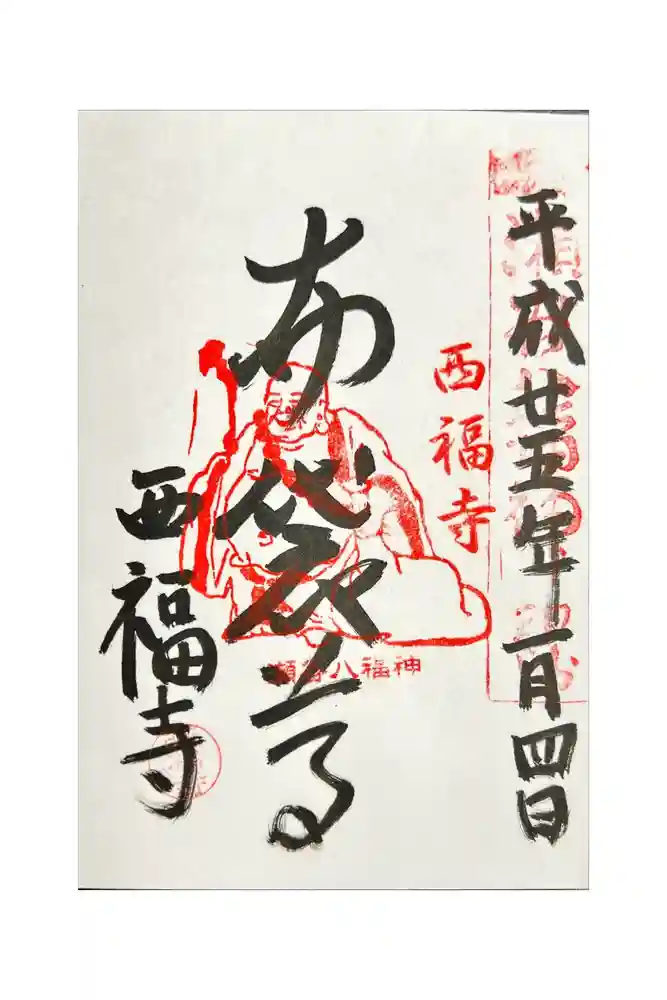 平成廿五年一月四日
西福寺
布袋尊
瀬谷八福神
西福寺